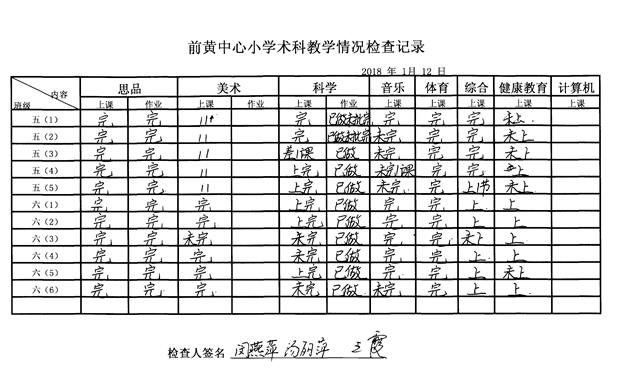 前黄中心小学术科教学情况检查记录
2018 年 1月 12 日
内容 班级 思品 美术 科学 音乐 体育 综合 健康教育 计算机
上课 作业 上课 作业 上课 作业 上课 上课 上课 上课 上课
五（1） 完 完 11 完 已做未批完 完 完 完 未上
五（2） 完 完 11 完 已做未批完 未完 完 完 未上
五（3） 完 完 11 差1课 已做 未完 完 完 未上
五（4） 完 完 11 上完 已做 未完1课 完 完 上
五（5） 完 完 11 上完 已做 未完 完 上1节 未上
六（1） 完 完 完 上完 已做 完 完 上 上
六（2） 完 完 完 上完 已做 完 完 上 上
六（3） 完 完 未完 未完 已做 完 完 未上 上
六（4） 完 完 完 未完 已做 完 完 上 上
六（5） 完 完 完 上完 已做 完 完 上 未上
六（6） 完 完 完 未完 已做 未完 完 上 上
检查人签名 闵燕萍 汤丽萍 王霞